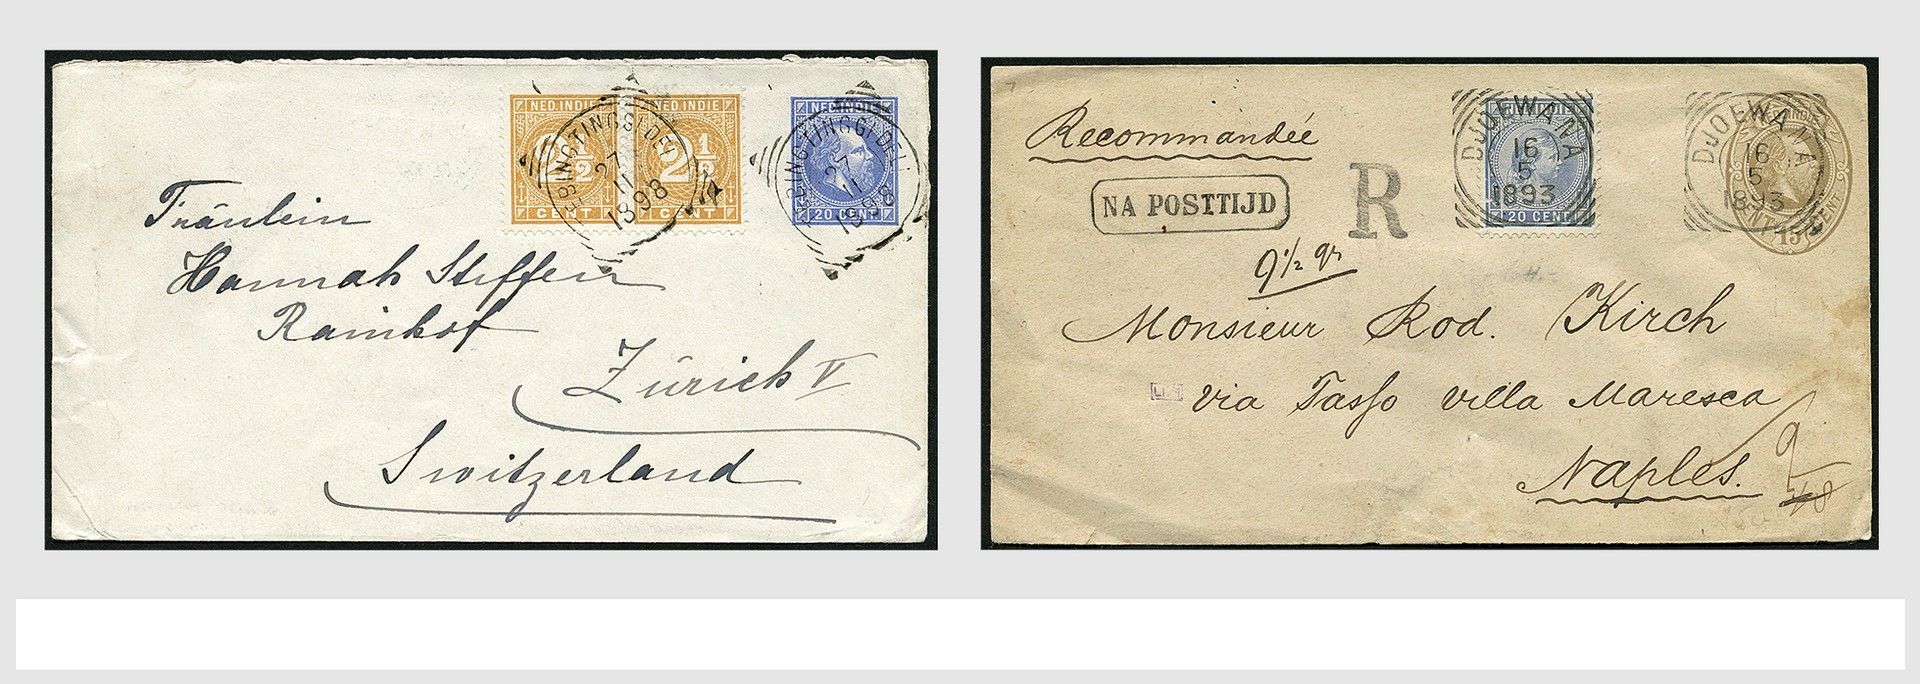 NED. INDIE NED. INDIE NED. INDIE
2½ 2½
CENT CENT 20 CENT
TEBINGTINGGI (DELI)
27
11
1898
TEBINGTINGGI (DELI)
27
11
1898
Fräulein
Hannah Steffen
Rainhof
Zürich V
Switzerland
Recommandée
NA POSTTIJD
R
DJOEWANA
16
5
1893
20 CENT
DJOEWANA
16
5
1893
INDIE
VIJFTIEN CENT
15
9½ gr
Monsieur Rod. Kirch
via Tasso villa Maresca
Naples.